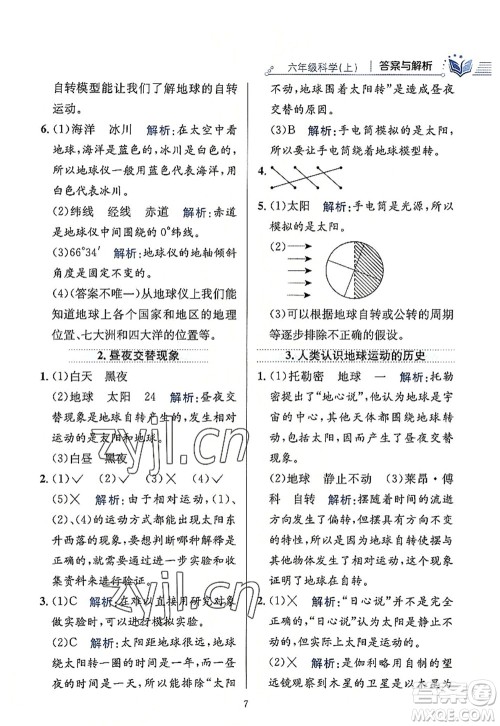 六年级科学(上) 答案与解析
自转模型能让我们了解地球的自转
运动。
6. (1)海洋 冰川 解析:在太空中看
地球,海洋是蓝色的,冰川是白色的,
所以地球仪一般用蓝色代表海洋,用
白色代表冰川。
(2)纬线 经线 赤道 解析:赤道
是地球仪上最长的纬线,为0°纬线。
(3)66°34′ 解析:地球仪的地轴倾斜
角度是固定不变的。
(4)(答案不唯一)从地球仪上我们能
知道地球上各个国家和地区的地理
位置、七大洲和四大洋的位置等。
2. 昼夜交替现象
1. (1)白天 黑夜
(2)地球 太阳 24 解析:昼夜交
替现象是地球自转产生的,发生相对
运动的是太阳和地球。
(3)白昼 黑夜
2. (1)✓ (2)✕ (3)✓ (4)✓
(5)✕ 解析:由于相对运动,太阳
或地球的运动方式都能出现太阳东
升西落的现象,要想判断哪种才是正
确的,还需要进一步通过实验和收
集资料来进行验证。
3. (1)C 解析:在难以直接用研究对象
做实验时,常进行模拟实验。
(2)C 解析:太阳距地球很远,地球
围绕太阳转一圈的时间是一年,一昼
夜的时间是一天,所以要排除“太阳
不动,地球围着太阳转”是造成昼夜
交替的原因。
(3)B 解析:手电筒模拟的是太阳,
所以要让手电筒绕着地球仪转。
4.
5. (1)太阳 解析:手电筒是光源,所以
模拟的是太阳。
(2)
(3)可以根据地球自转或公转的周期
等逐步排除不正确的假设。
3. 人类认识地球运动的历史
1. (1)托勒密 地球 一 解析:托勒
密提出了“地心说”,他认为地球处于
宇宙中心,所有天体都围绕着地球运
动,且每天做一次圆周运动。
(2)地球 静止不动 (3)莱昂·傅
科 自转 解析:随着时间的流逝,
摆的方向发生了偏转,傅科认为是地
球自转使傅科摆发生了偏转,因此傅
科摆有力地证明了地球在自转。
2. (1)✕ 解析:“日心说”并不是完全
正确的,如太阳并不是宇宙的中心,
太阳也不是静止不动的。
(2)✕ 解析:“日心说”认为太阳处
于宇宙的中心。
(3)✕ 解析:是伽利略用自制的望
远镜观测到木星的卫星是以木星为
7
zyjl.cn
zyjl.cn
答案圈
MXQE.COM